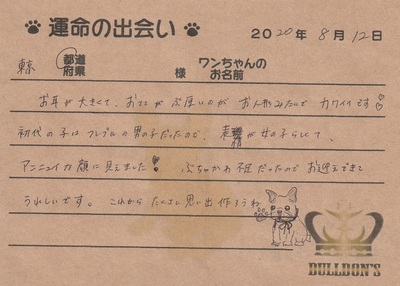 運命の出会い 2020年 8月 12日
東京 都道府県 様 ワンちゃんのお名前
お耳が大きくて、お口が ぶ厚いのが お人形みたいで カワイイです
初代の子は フレブルの男の子だったので、表情が女の子らしくて、
アンニュイな顔に見えました! ぶちかわ不足だったので お迎えできて
うれしいです。これから たくさん思い出作ろうね
BULLBON'S